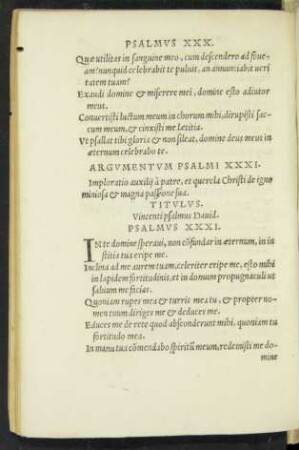 PSALMVS XXX.
Quæ utilitas in sanguine meo, cum descendero ad foue-
am? nunquid celebrabit te puluis, an annunciabit ueri
tatem tuam?
Exaudi domine & miserere mei, domine esto adiutor
meus.
Conuertisti luctum meum in chorum mihi, dirupisti sac
cum meum, & cinxisti me lætitia.
Vt psallat tibi gloria & non sileat, domine deus meus in
æternum celebrabo te.
ARGVMENTVM PSALMI XXXI.
Imploratio auxilij à patre, et querela Christi de igno
miniosa & magna passione sua.
TITVLVS.
Vincenti psalmus Dauid.
PSALMVS XXXI.
IN te domine speraui, non cōfundar in æternum, in iu
stitia tua eripe me.
Inclina ad me aurem tuam, celeriter eripe me, esto mihi
in lapidem fortitudinis, et in domum propugnaculi ut
saluum me facias.
Quoniam rupes mea & turris mea tu, & propter no-
men tuum diriges me & deduces me.
Educes me de rete quod absconderunt mihi, quoniam tu
fortitudo mea.
In manu tua cōmendabo spiritū meum, redemisti me do-
mine